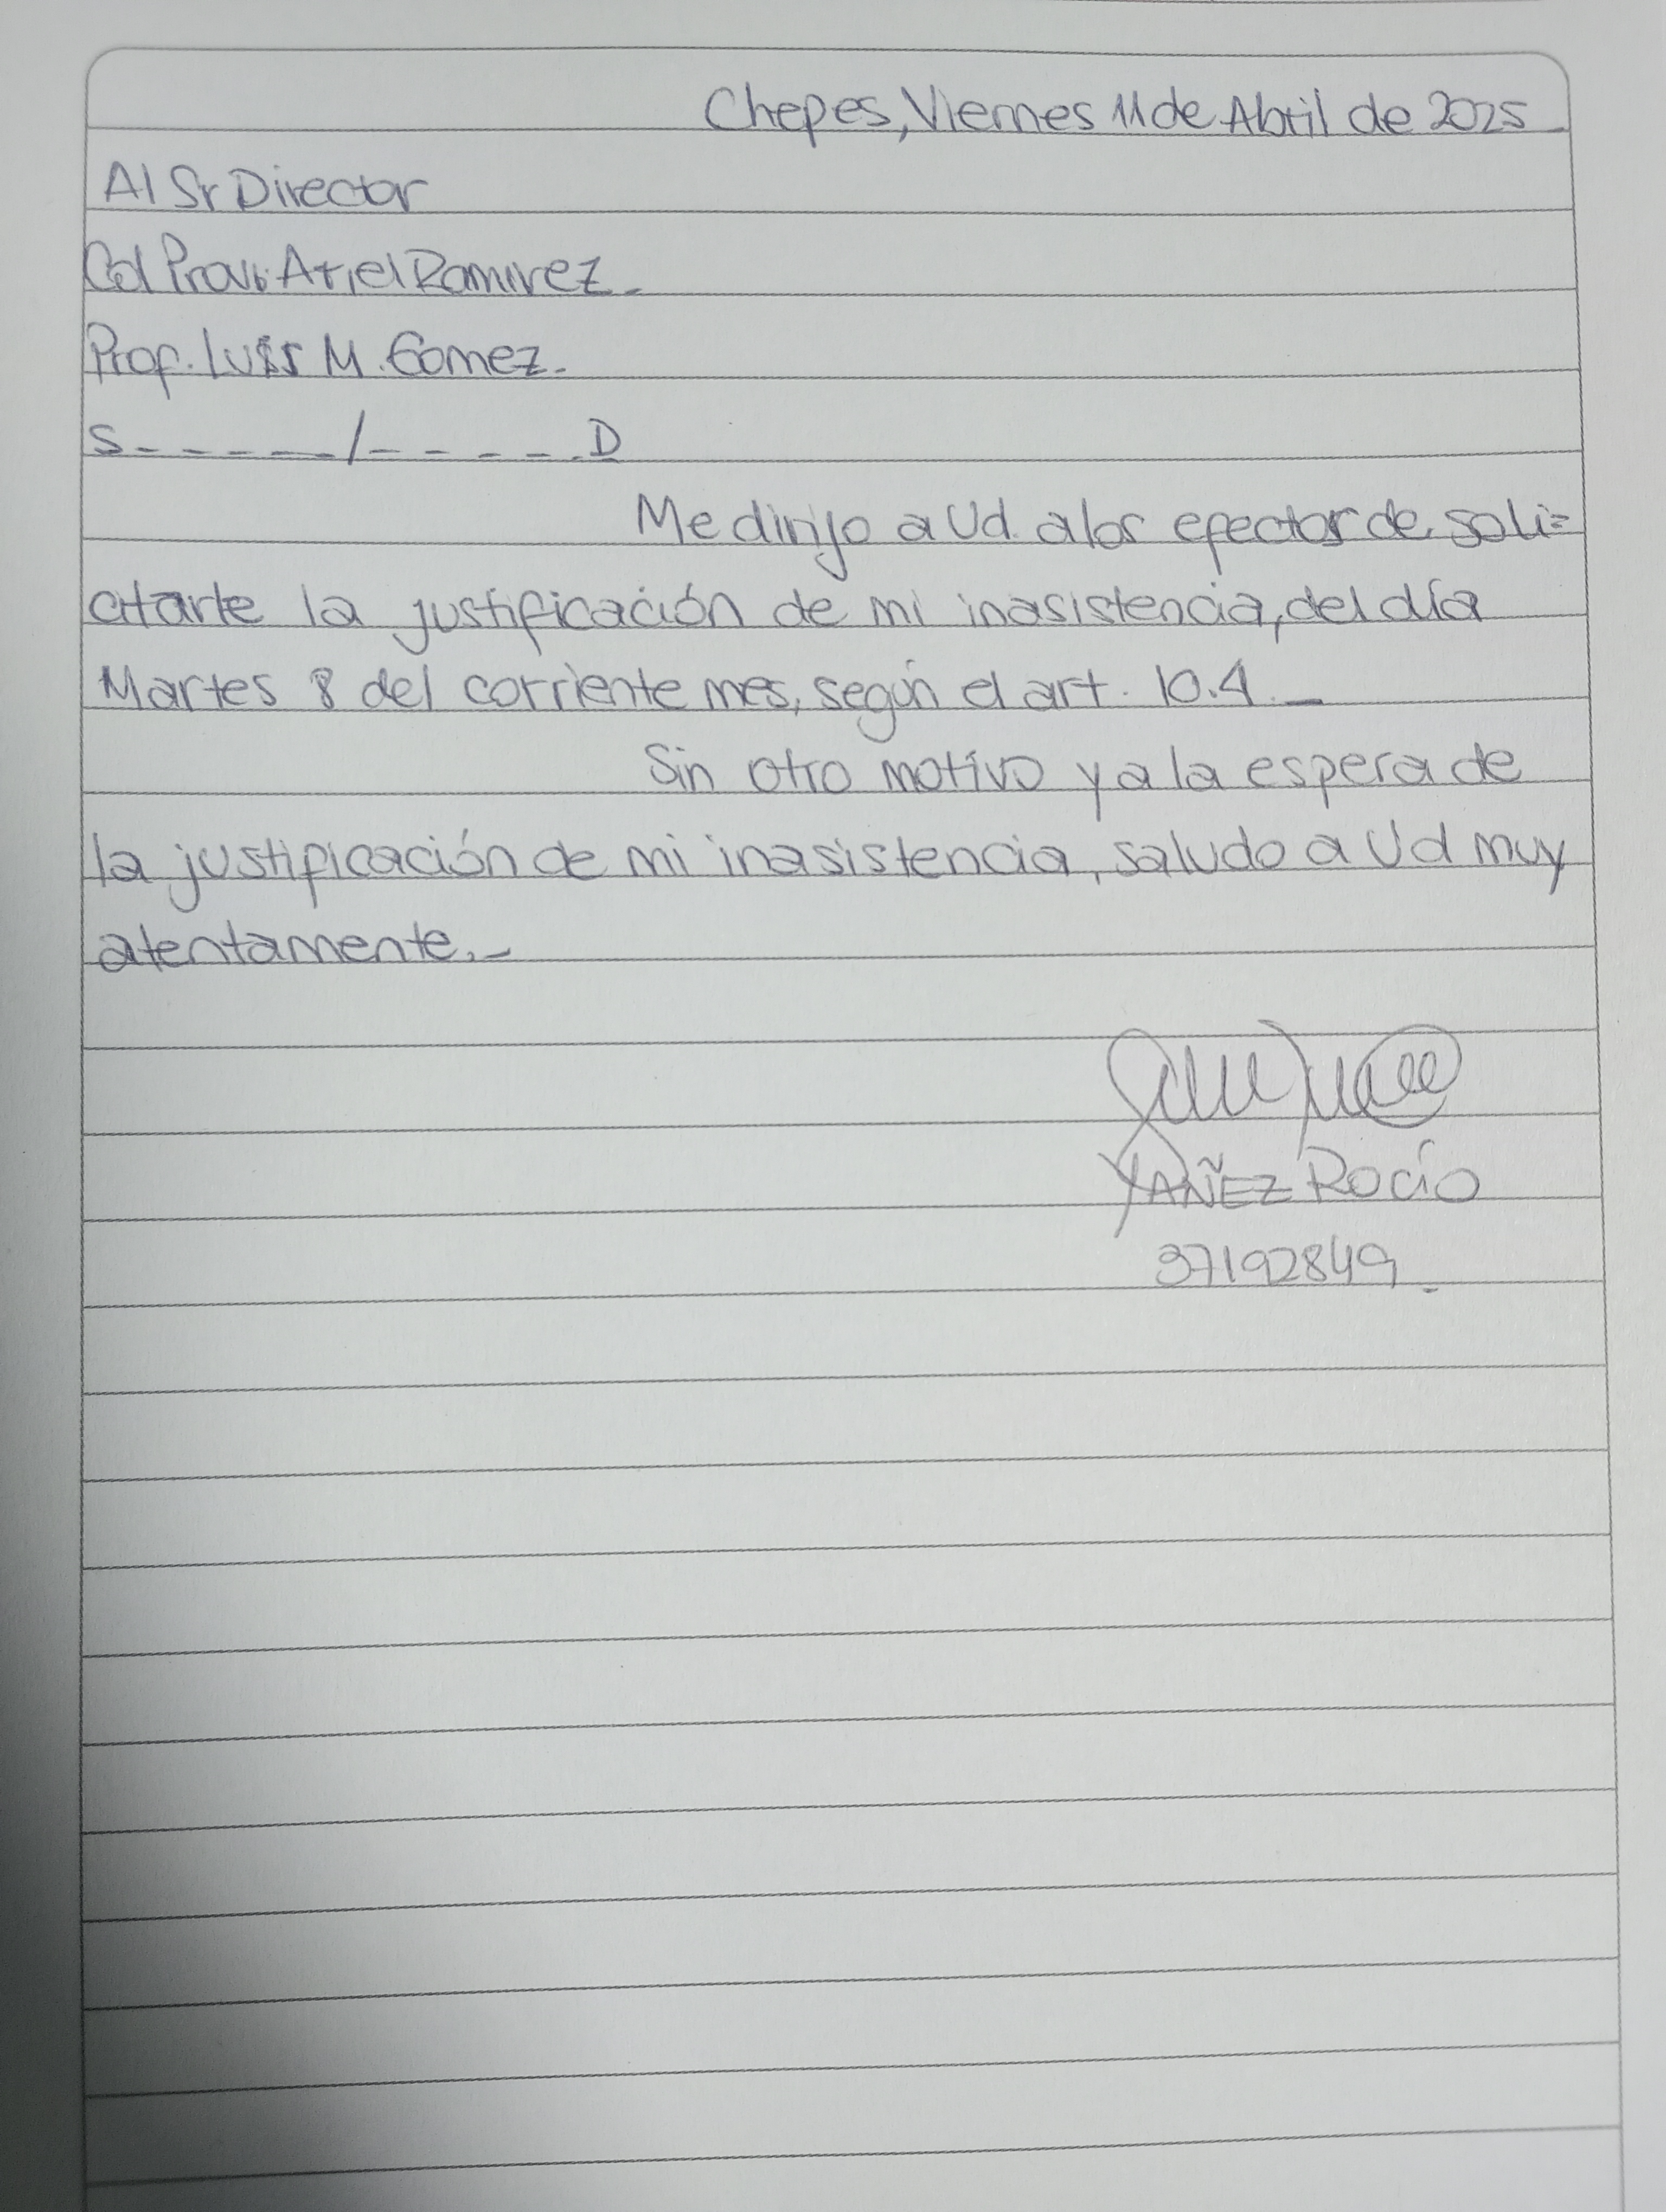 Chepes, Viernes 11 de Abril de 2025
Al Sr Director
Col Prov: Ariel Ramirez.
Prof. Luis M. Gomez.
S-----/-----.D
Me dirijo a Ud. a los efectos de soli=
citarle la justificación de mi inasistencia, del día
Martes 8 del corriente mes, según el art. 10.4._
Sin otro motivo y a la espera de
la justificación de mi inasistencia, saludo a Ud muy
atentamente._
YAÑEZ Rocío
37192849.